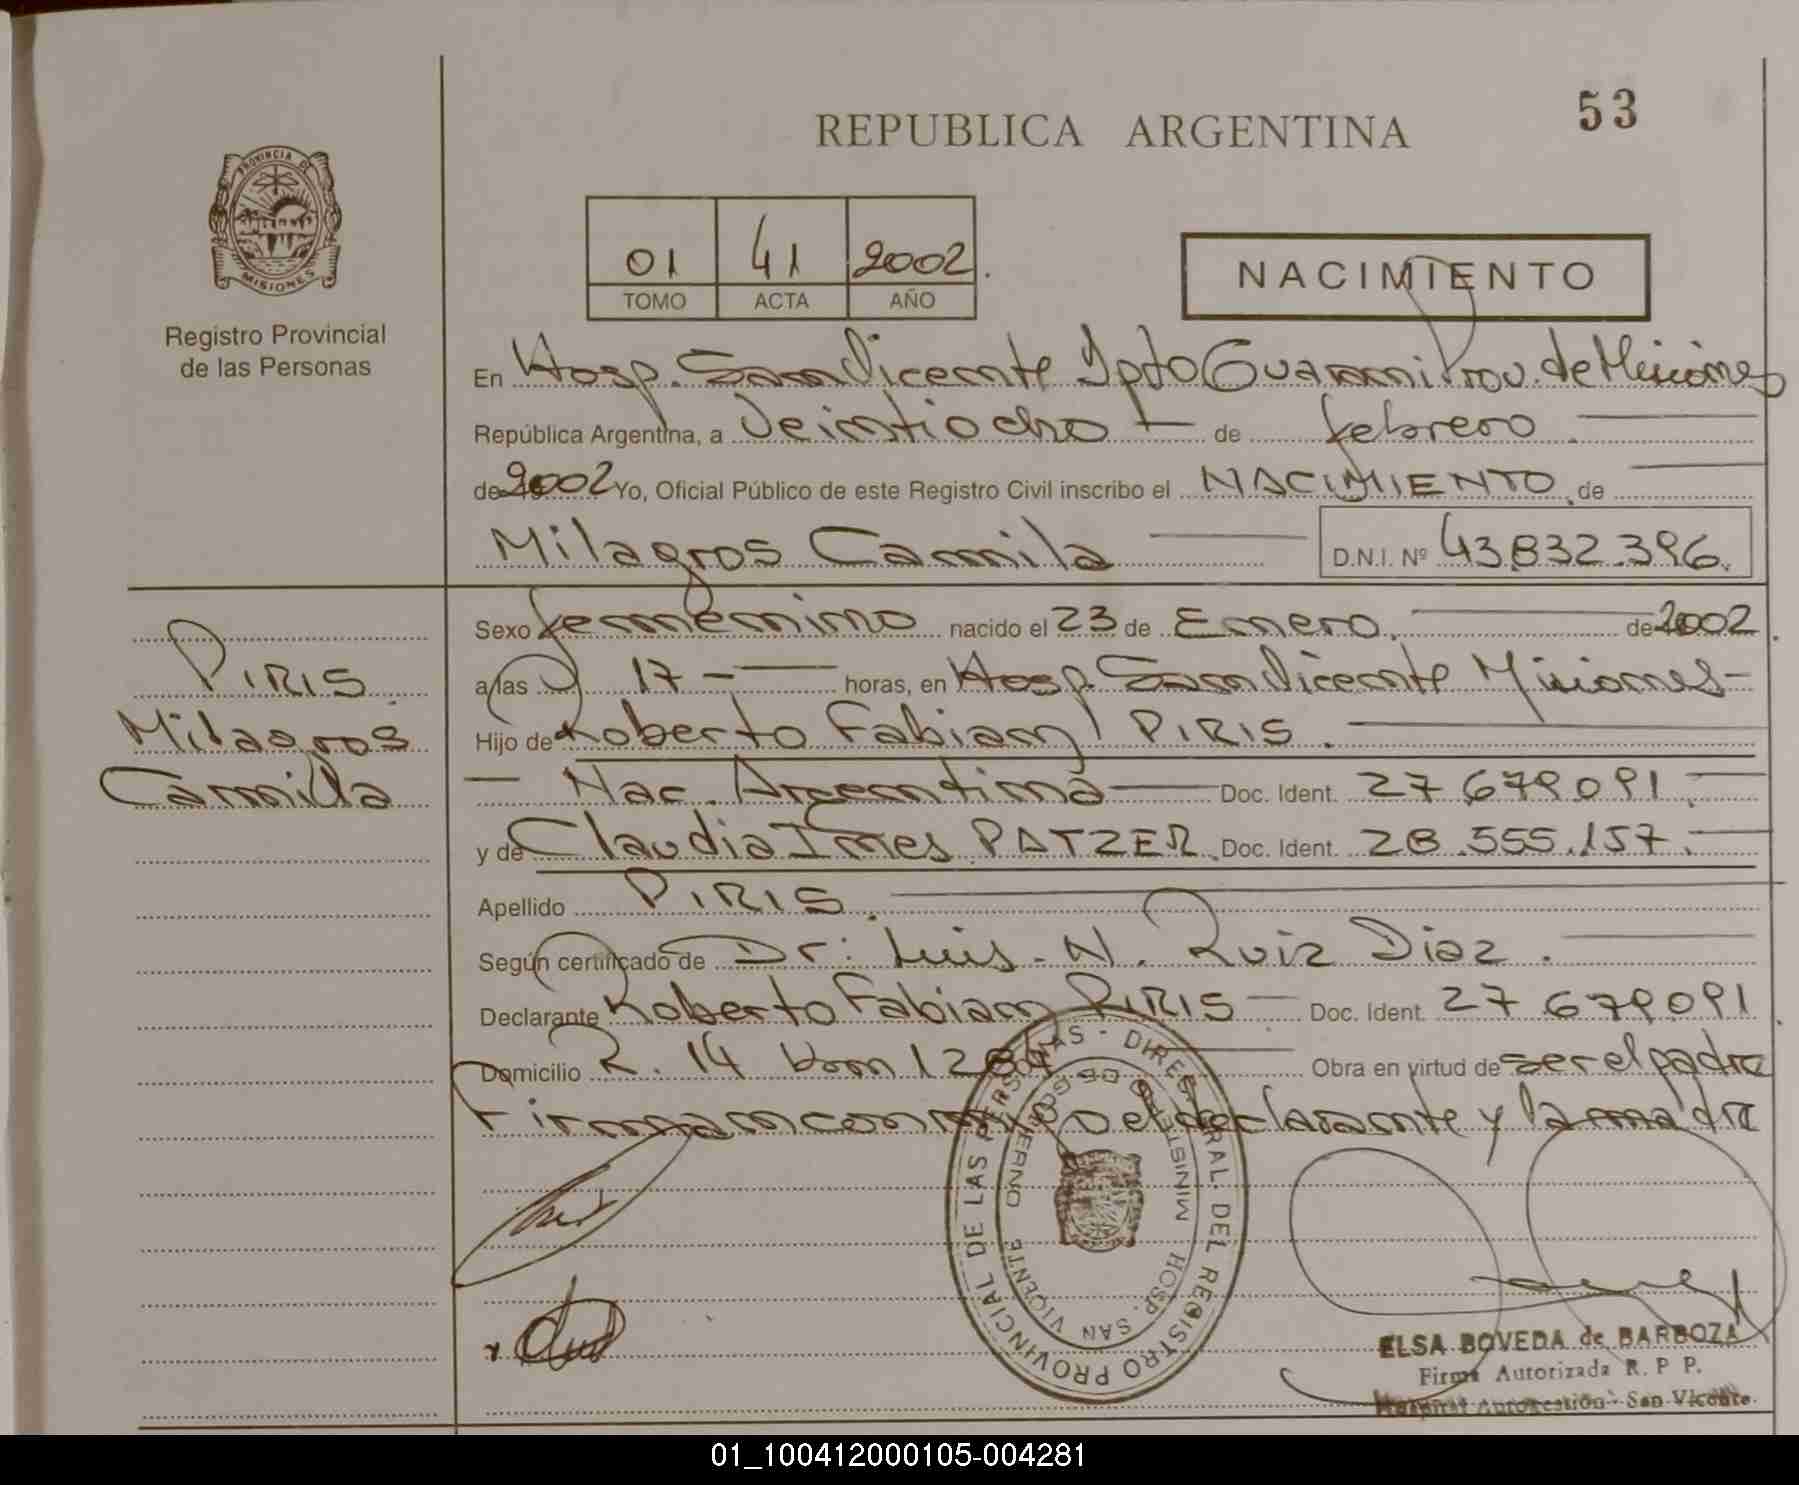 53
REPUBLICA ARGENTINA
PROVINCIA DE
MISIONES
Registro Provincial
de las Personas
01 41 2002.
TOMO ACTA AÑO
NACIMIENTO
En Hosp. San Vicente Dpto Guarani Prov. de Misiones
República Argentina, a Veintiocho — de febrero.
de 2002 Yo, Oficial Público de este Registro Civil inscribo el NACIMIENTO de
Milagros Camila D.N.I. Nº 43.832.396.
PIRIS
Milagros
Camila
Sexo femenino nacido el 23 de Enero. de 2002.
a las 17 — horas, en Hosp. San Vicente Misiones-
Hijo de Roberto Fabian PIRIS.
— Nac. Argentina — Doc. Ident. 27 679 091.
y de Claudia Ines PATZER. Doc. Ident. 28.555.157.
Apellido PIRIS.
Según certificado de Dr: Luis. N. Ruiz Diaz.
Declarante Roberto Fabian PIRIS — Doc. Ident. 27 679 091.
Domicilio R. 14 Km Obra en virtud de ser el padre
Firman conmigo el declarante y la madre
REGISTRO PROVINCIAL DE LAS PERSONAS - DIREC. GRAL. DEL
MINISTERIO DE GOBIERNO
HOSP. SAN VICENTE
ELSA BOVEDA de BARBOZA
Firma Autorizada R. P P.
Hospital Autogestión - San Vicente.
01_100412000105-004281